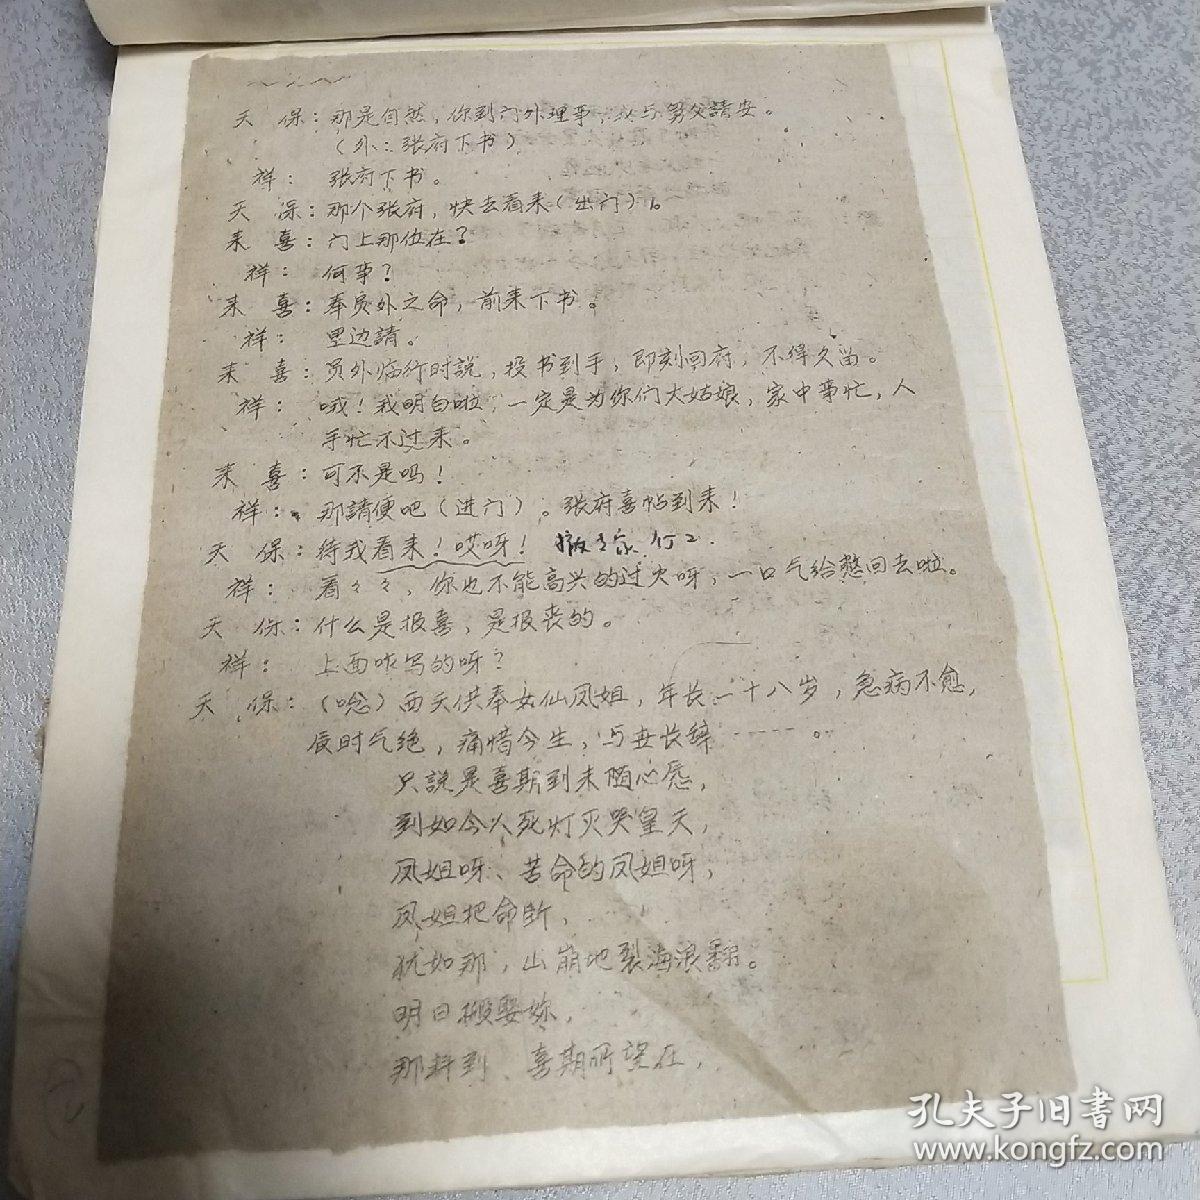 天保：那是自然，你到门外理事，以与舅父請安。
（外：张府下书）
祥：张府下书。
天保：那个张府，快去看来（出门）。
来喜：门上那位在？
祥：何事？
来喜：奉员外之命，前来下书。
祥：里边請。
来喜：员外临行时説，投书到手，即刻回府，不得久留。
祥：哦！我明白啦，一定是为你们大姑娘，家中事忙，人
手忙不过来。
来喜：可不是吗！
祥：那請便吧（进门）。张府喜帖到来！
天保：待我看来！哎呀！
祥：看々々，你也不能高兴的过火呀，一口气给憋回去啦。
天保：什么是报喜，是报丧的。
祥：上面咋写的呀？
天保：（唸）西天供奉女仙凤姐，年长一十八岁，急病不愈，
辰时气绝，痛惜今生，与世长辞-----。
只説是喜期到来随心愿，
到如今人死灯灭哭皇天，
凤姐呀、苦命的凤姐呀，
凤姐把命断，
犹如那，山崩地裂海浪翻。
明日搬娶妳，
那料到、喜期所望在，
孔夫子旧书网
www.kongfz.com